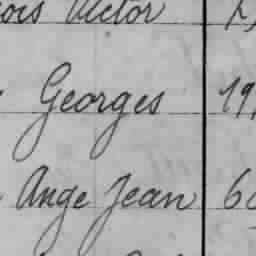 ois Victor
Georges 19
Ange Jean 6